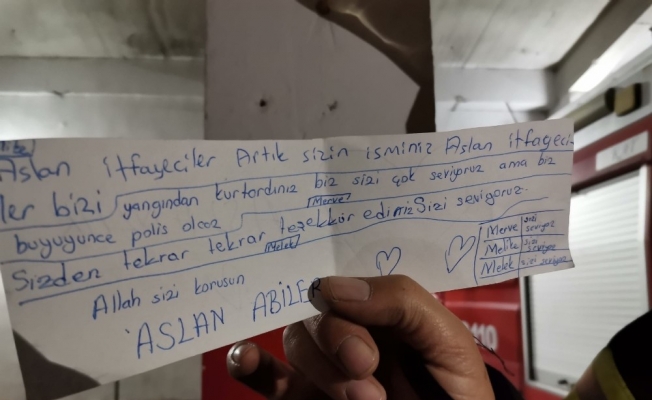 Aslan itfayeciler Artık sizin isminiz Aslan itfayeci
ler bizi yangından kurtardınız biz sizi çok seviyoruz ama biz
büyüyünce polis olcaz
Merve
Sizden tekrar tekrar teşekkür edimiz Sizi seviyoruz.
Melek
Allah sizi korusun
ASLAN ABİLER
Merve sizi seviyor
Melike sizi seviyor
Melek sizi seviyor
110